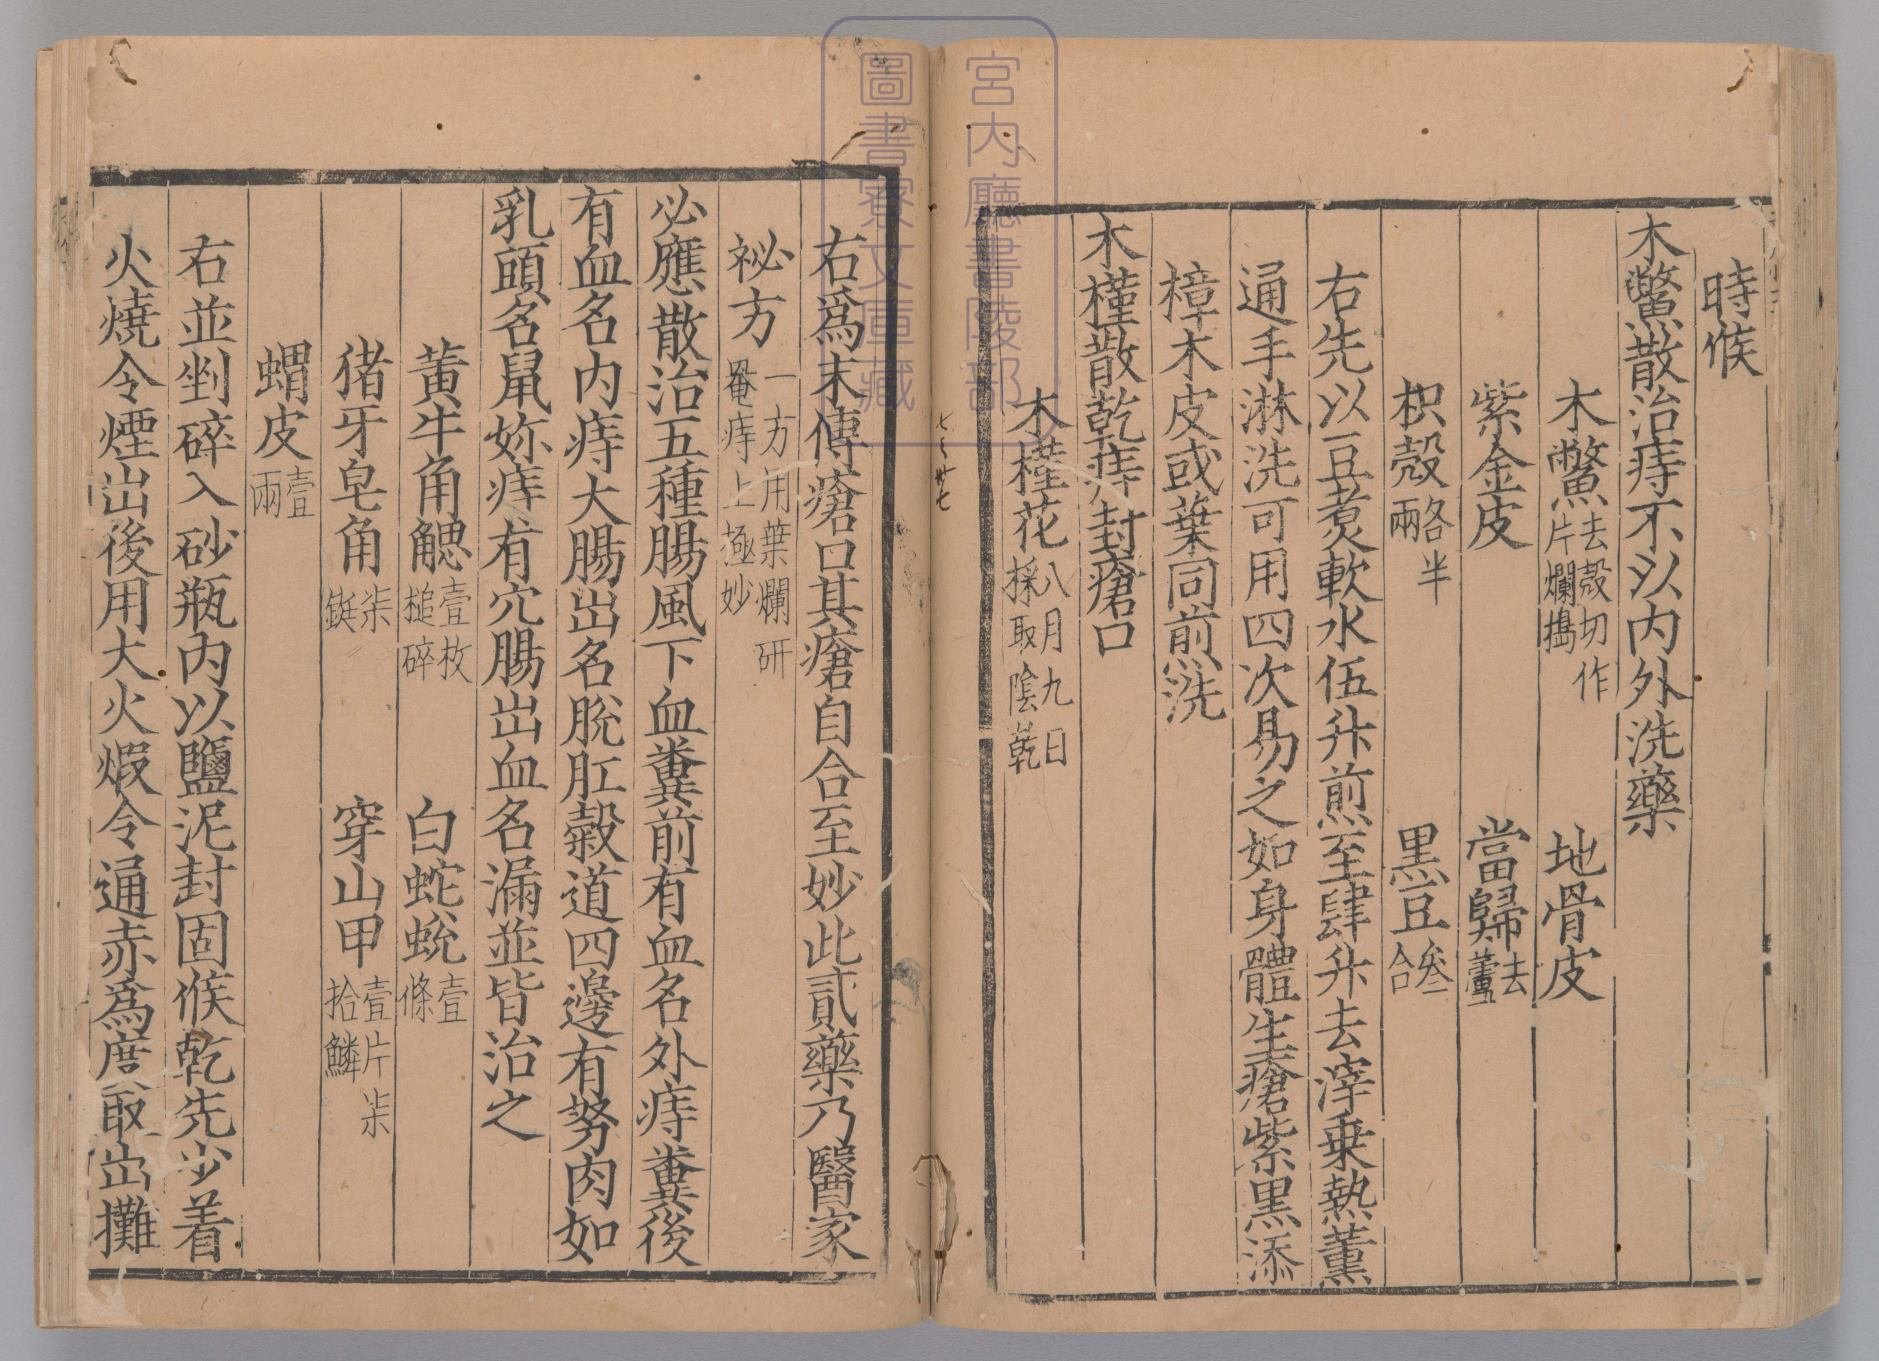 時候
木鱉散治痔不以內外洗藥
木鱉去殼切作片爛搗　地骨皮
紫金皮　當歸去蘆
枳殼各半兩　黑豆叁合
右先以豆煑軟水伍升煎至肆升去滓乗熱薰
通手淋洗可用四次易之如身體生瘡紫黑添
樟木皮或葉同前煎洗
木槿散乾痔封瘡口
木槿花八月九日採取陰乾
右爲末傅瘡口其瘡自合至妙此貳藥乃醫家
祕方一方用葉爛研罨痔上極妙
必應散治五種腸風下血糞前有血名外痔糞後
有血名内痔大腸出名脫肛榖道四邊有努肉如
乳頭名鼠妳痔有穴腸出血名漏並皆治之
黃牛角䚡壹枚槌碎　白蛇蛻壹條
猪牙皂角柒鋌　穿山甲壹片柒拾鱗
蝟皮壹兩
右並剉碎入砂瓶內以鹽泥封固候乾先少着
火燒令煙出後用大火煆令通赤爲度取出攤
宮内廳書陵部
圖書寮文庫藏